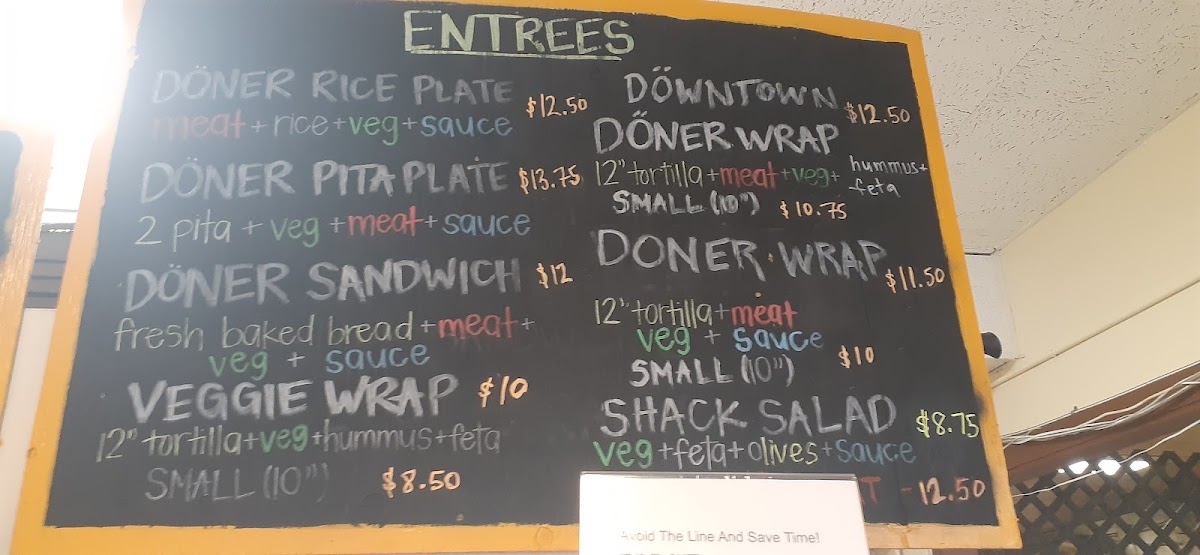 ENTREES
DÖNER RICE PLATE $12.50
meat + rice + veg + sauce
DÖNER PITA PLATE $13.75
2 pita + veg + meat + sauce
DÖNER SANDWICH $12
fresh baked bread + meat +
veg + sauce
VEGGIE WRAP $10
12" tortilla + veg + hummus + feta
SMALL (10") $8.50
DÖWNTOWN $12.50
DÖNER WRAP
12" tortilla + meat + veg + hummus + feta
SMALL (10") $10.75
DONER WRAP $11.50
12" tortilla + meat
veg + sauce
SMALL (10") $10
SHACK SALAD $8.75
veg + feta + olives + sauce
- 12.50
Avoid The Line And Save Time!